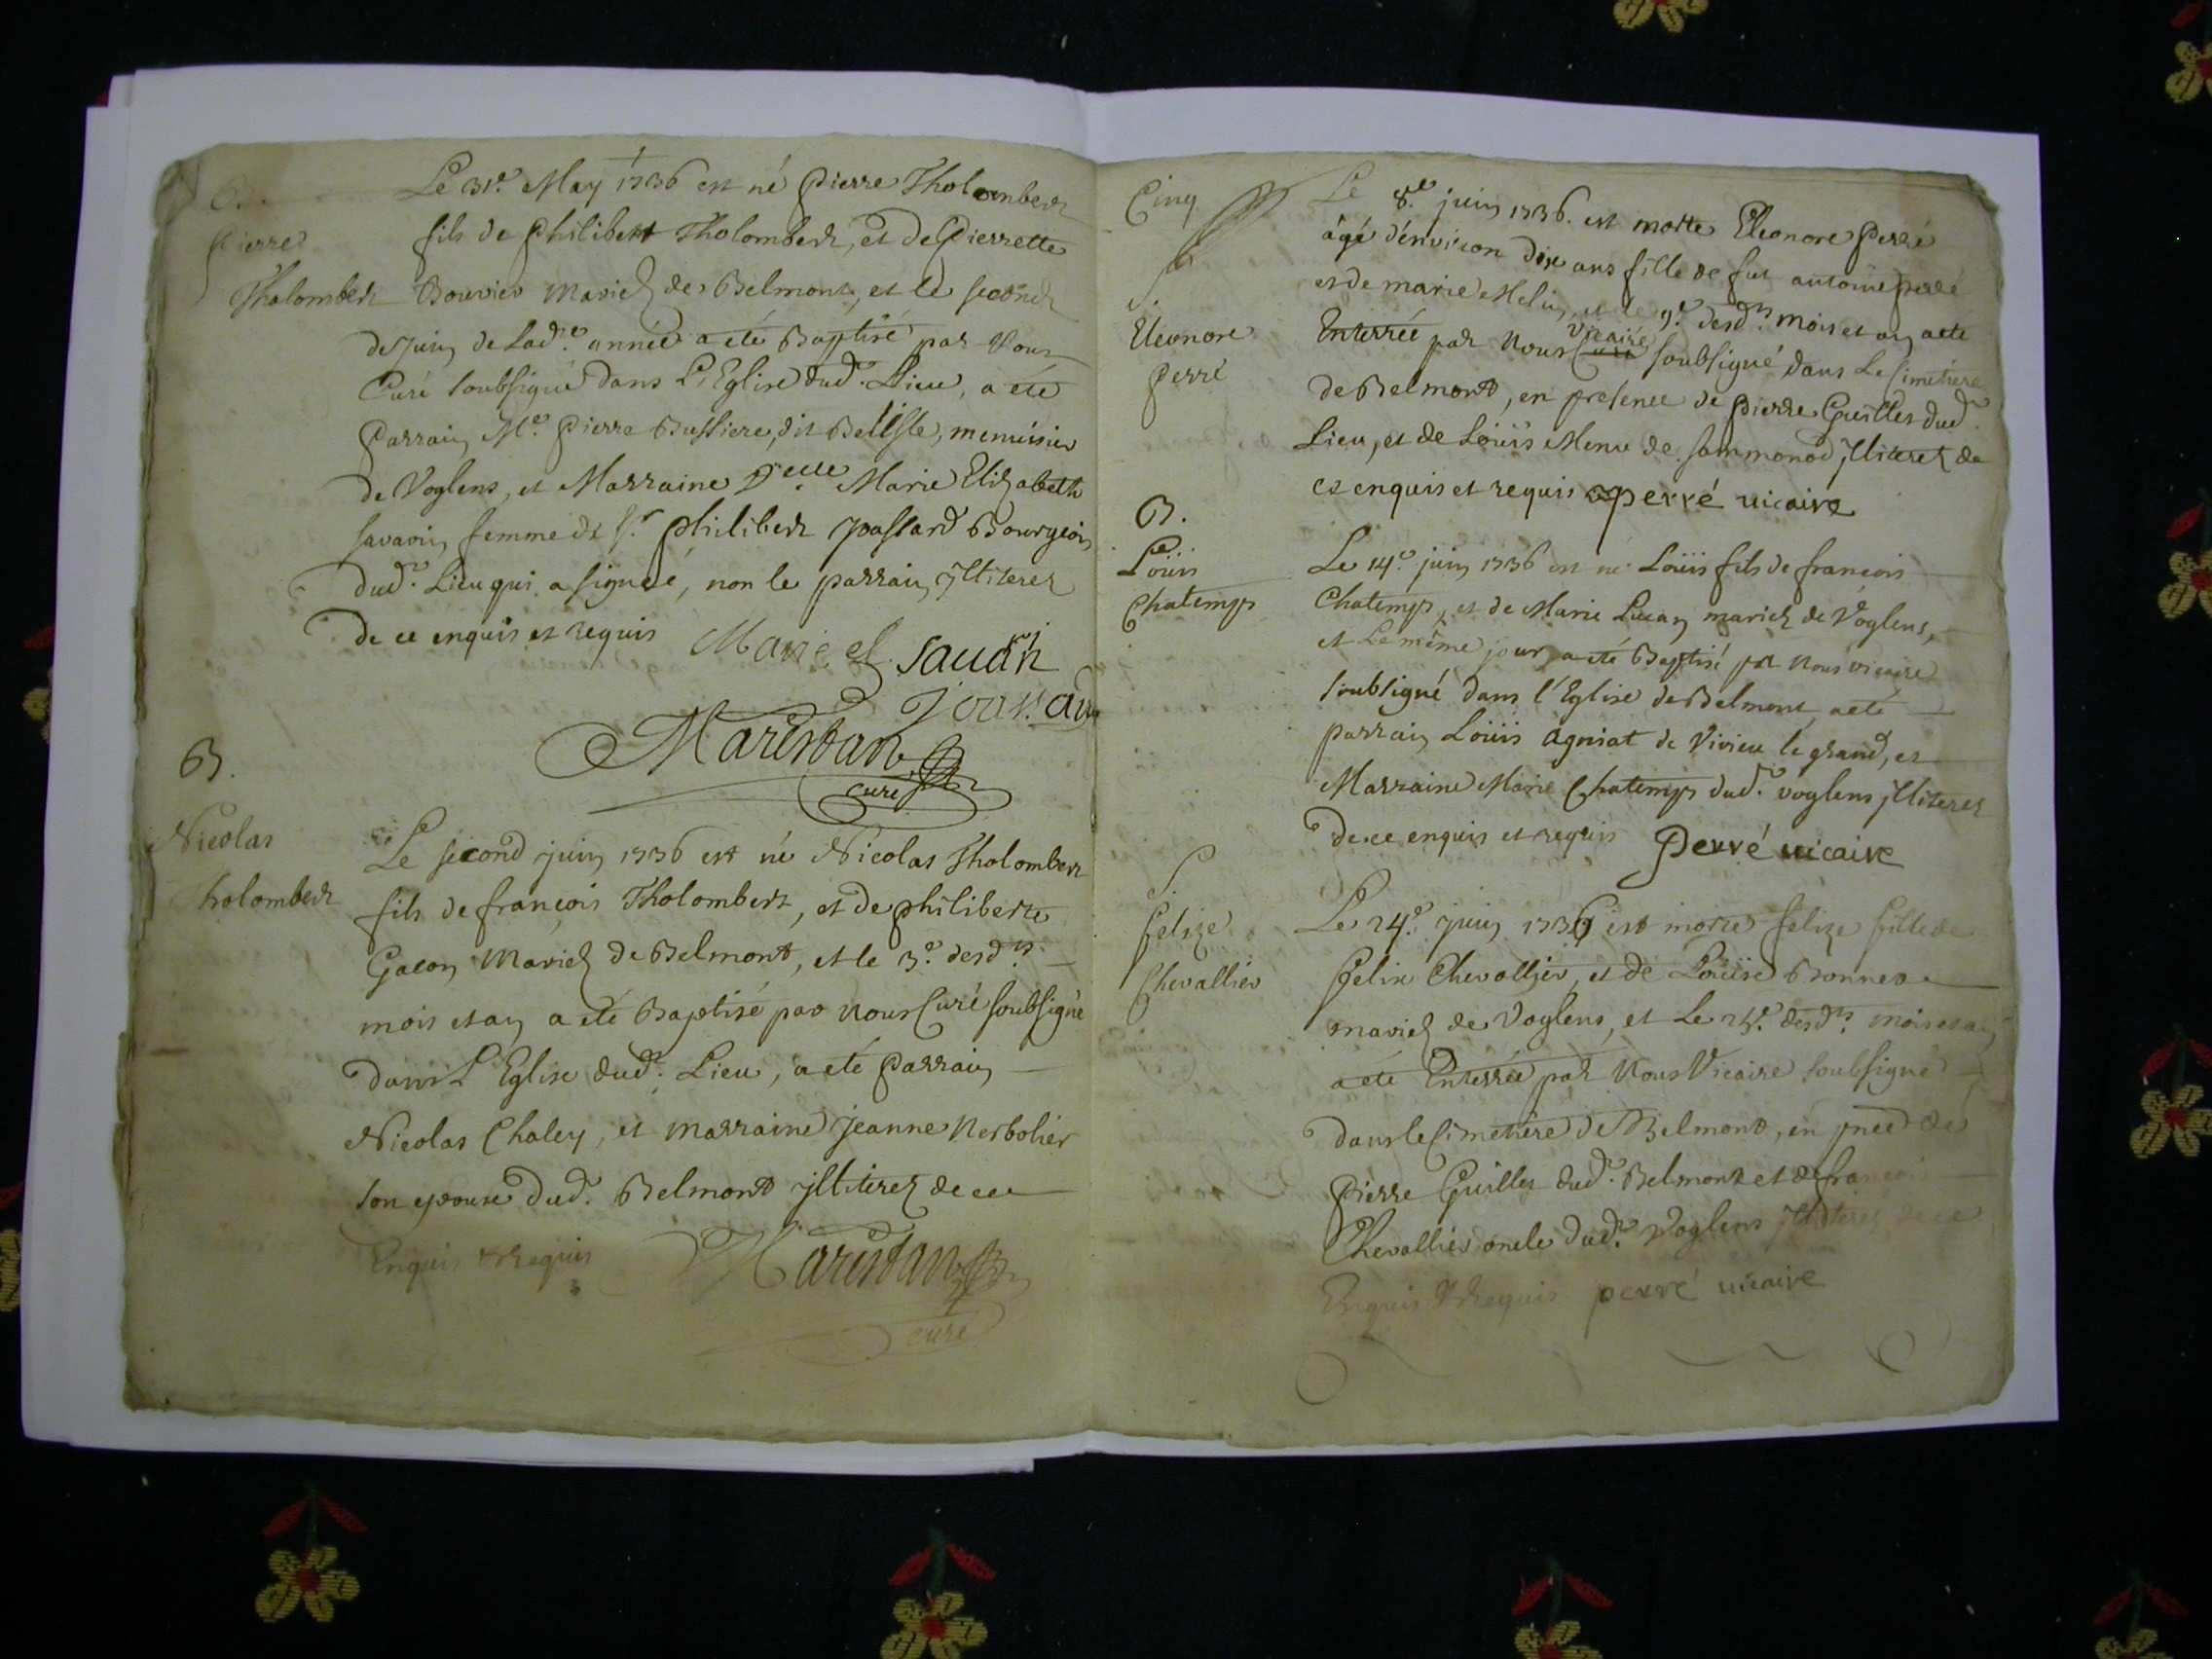 B.
Pierre
Tholombert
Le 31e. May 1736 est né Pierre Tholombert
fils de Philibert Tholombert, et de Pierrette
Bouvier Mariez de Belmont, et le second
de Juin de Lade. année a eté Baptisé par Nous
Curé soubsigné dans L'Eglise dud. Lieu, a eté
Parrain Me. Pierre Bussiere, dit Bellisle, menuisier
de Voglens, et Marraine Delle Marie Elizabeth
savarin femme de Sr. philibert Jossard Bourgeois
dud. Lieu qui a signeé, non le parrain jlliterez
de ce enquis et requis Marie el Sauarin
Marestan
curé
B.
Nicolas
Tholombert
Le second juin 1736 est né Nicolas Tholombert
fils de françois Tholombert, et de philiberte
Gacon Mariez de Belmont, et le 3e. desdts.
mois et an a eté Baptisé par nous Curé soubsigné
dans L'Eglise dud. Lieu, a eté Parrain
Nicolas Chaley, et marraine jeanne Nerbolier
son epouse dud. Belmont jlliterez de ce
Enquis et Requis Marestan
curé
Cinq
S.
Eleonore
Perré
Le 8e. juin 1736. est morte Eleonore Perré
âgé d'environ dix ans fille de fut antoine perré
et de marie Melin, et le 9e. desdts. mois et an a eté
Enterrée par Nous Curé Vicaire soubsigné dans Le Cimetiere
de Belmont, en presence de Pierre Guilles dud.
Lieu, et de Loüis Menu de sammonod jlliterez de
ce enquis et requis perré uicaire
B.
Loüis
Chatemps
Le 14e. juin 1736 est né Loüis fils de francois
Chatemps, et de Marie Lucan mariez de Voglens,
et Le même jour a eté Baptisé par Nous vicaire
soubsigné dans l'Eglise de Belmont, a eté
parrain Loüis agniat de Virieu le grand, et
Marraine Marie Chatemps dud. voglens jlliterez
de ce enquis et requis Perré uicaire
S.
felize
Chevallier
Le 24e. juin 1736 est morte felize fille de
felix Chevallier, et de Loüise Bonnet
mariez de Voglens, et Le 25e. desdts. mois et an
a eté Enterrée par Nous Vicaire soubsigné
dans le Cimetiere de Belmont, en pnce de
Pierre Guilles dud. Belmont et de francois
Chevallier oncle dud. Voglens jlliterez de ce
Enquis & Requis perré uicaire